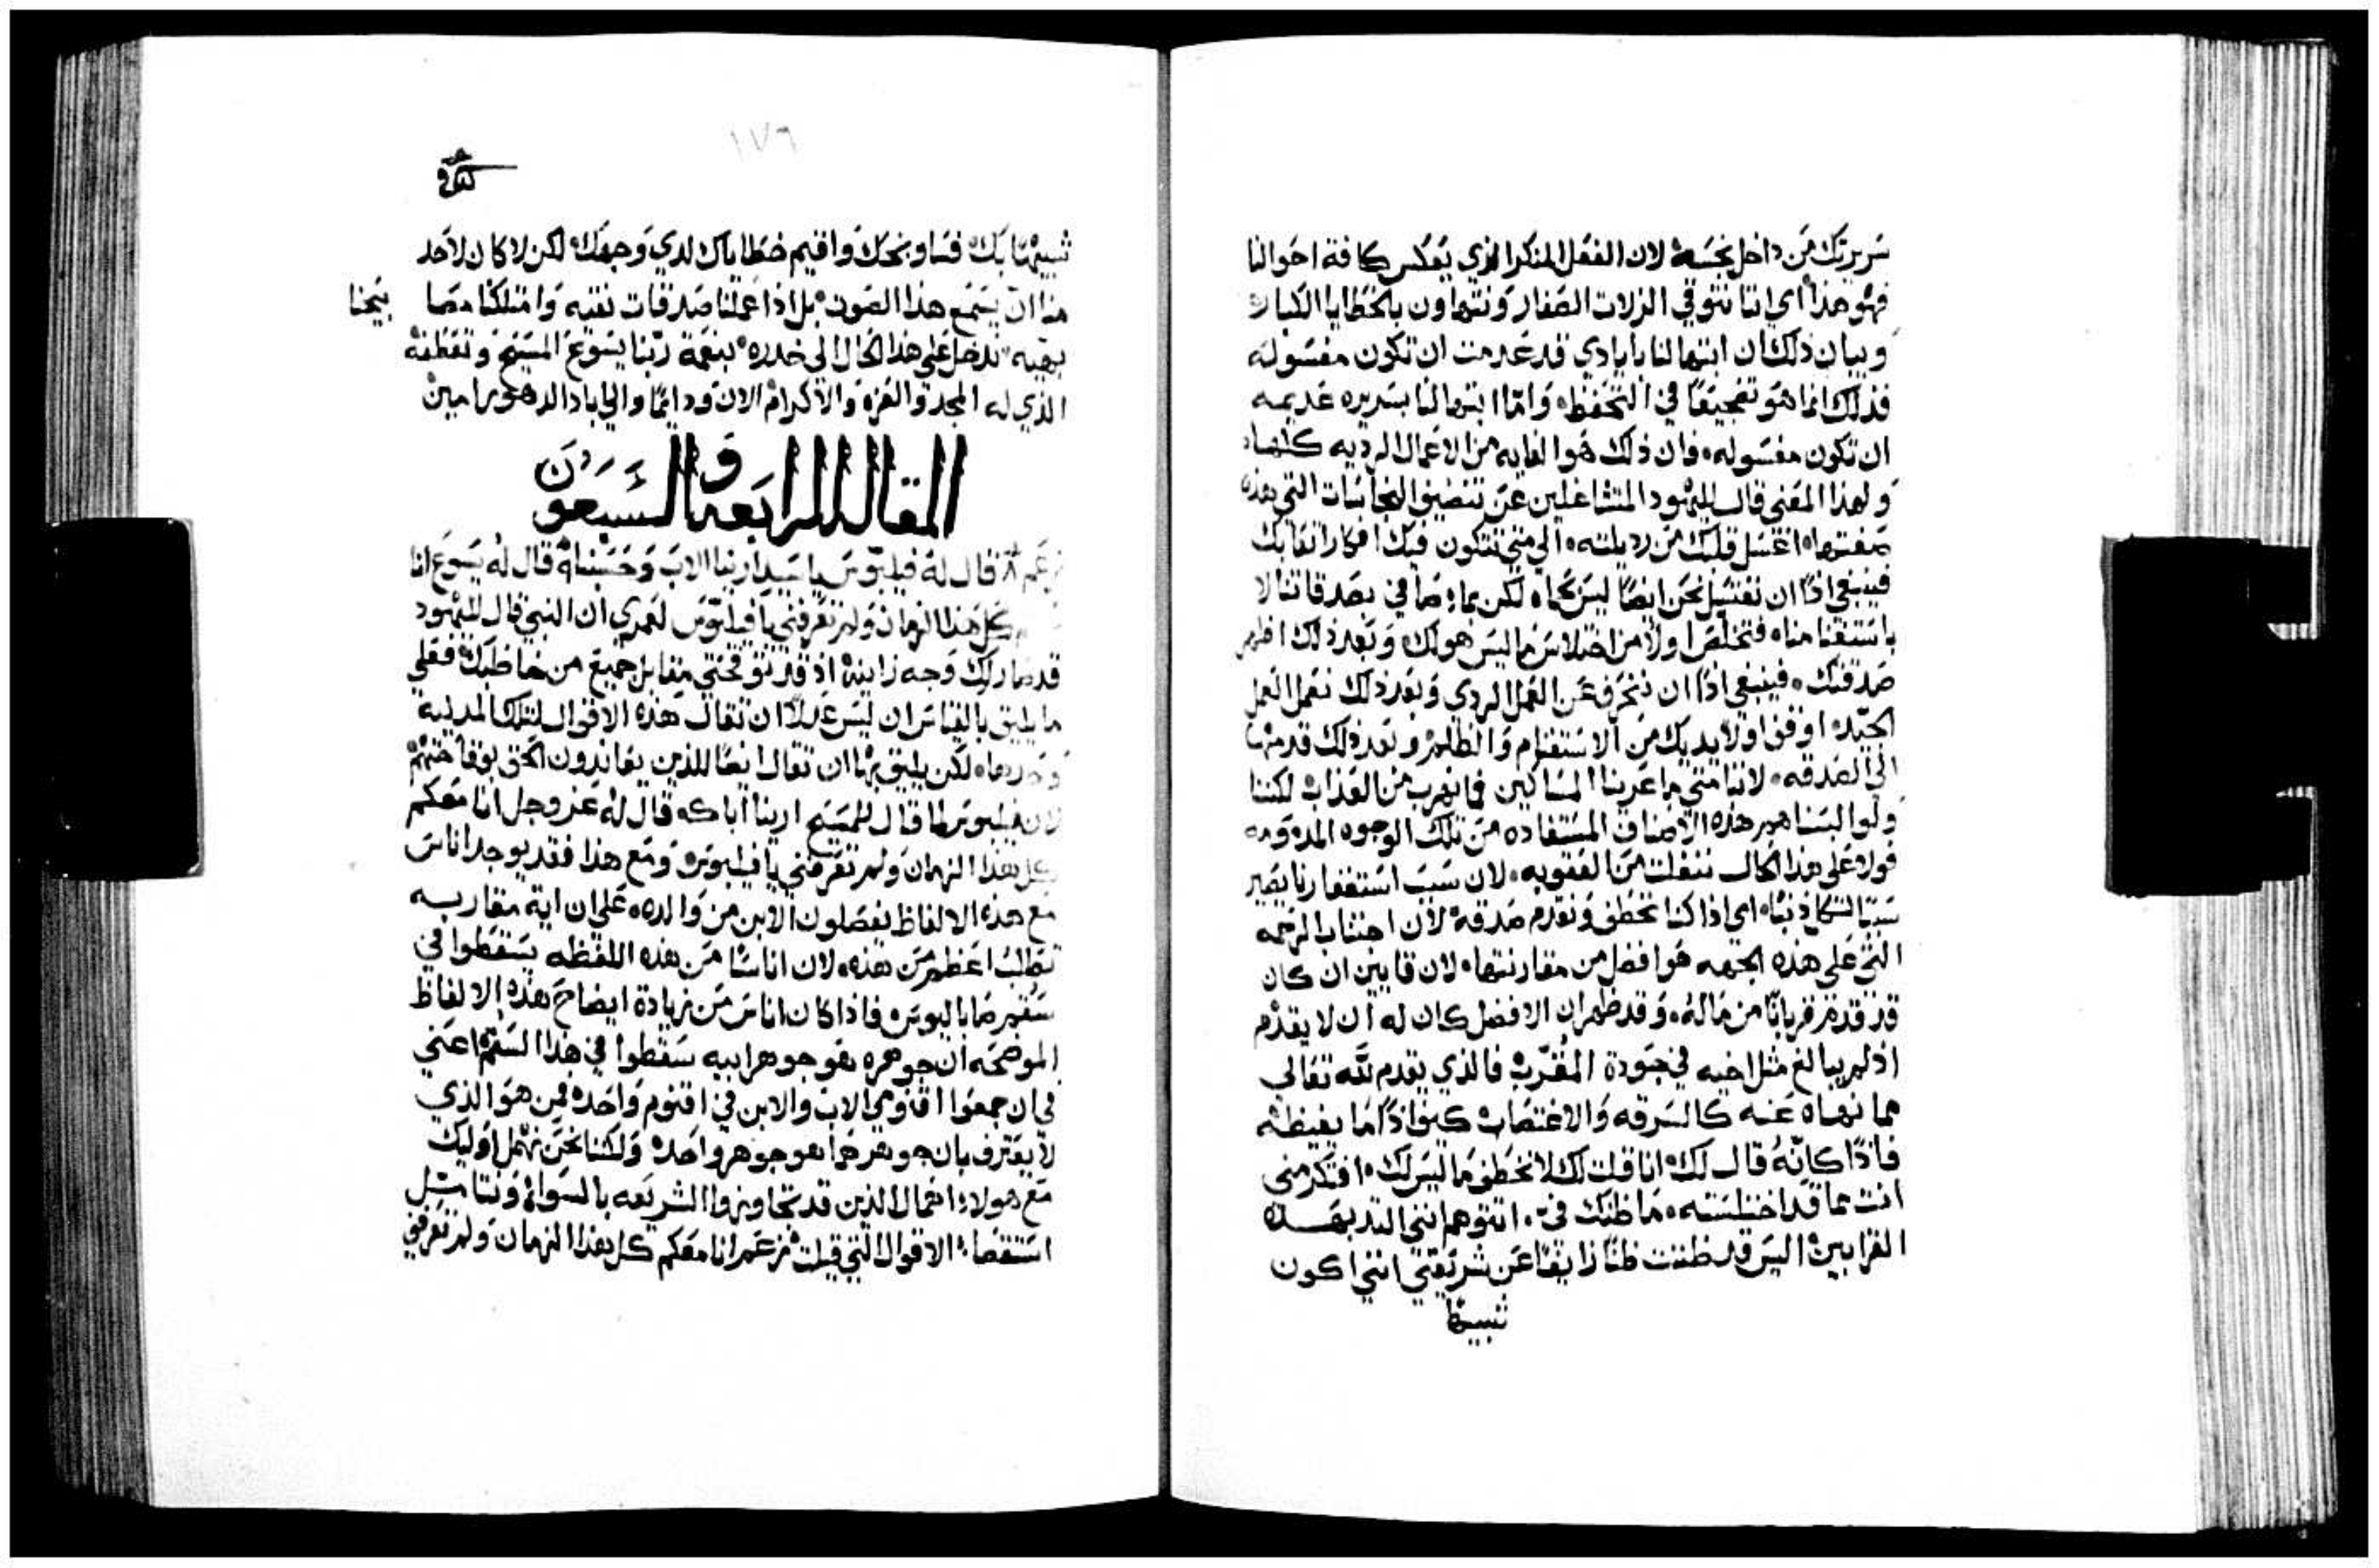 سريرتك من داخل نجسه لان الفعل المنكر الذي يعكس كافة احوالنا
فهو هذا اي اننا نتوقي الزلات الصغار ونتهاون بالخطايا الكبار
وبيان ذلك ان ابتهالنا بايادي قد عدمت ان تكون مغسوله
فذلك انما هو تضجيعًا في التحفظ واما ابتهالنا بسريره عديمه
ان تكون مغسوله فان ذلك هو الغايه من الاعمال الرديه كلها
ولهذا المعني قال لليهود المتشاغلين عن تنضيف النجاسات التي هذه
صفتها اغسل قلبك من رذيلته الي متي تتكون فيك افكار اتعابك
فينبغي اذًا ان نغتسل نحن ايضًا ليس بحماه لكن بماء صافي بصدقاتنا لا
باستغنامنا فتخلص اولًا من اختلاس ما ليس هو لك وبعد ذلك اظهر
صدقتك فينبغي اذًا ان ننحرف عن العمل الردي وبعد ذلك نعمل العمل
الجيد اوقف اولًا يديك من الاستغنام والظلم وبعد ذلك قدمها
الي الصدقه لاننا متي ما اعرينا المساكين فما نهرب من العذاب لكننا
ولو البسناهم هذه الاصناف المستفاده من تلك الوجوه المذمومه
فولا علي هذا الحال ننفلت من العقوبه لان سبب استغفارنا يصير
سببًا لكل ذنب اي اذا كنا نخطف ونقدم صدقه لان اجتناب الرحمه
التي علي هذه الجهه هو افضل من مقارنتها لان قايين ان كان
قد قدم قربانًا من ماله وقد ظهر ان الافضل كان له ان لا يقدم
اذ لم يبالغ مثل اخيه في جودة المقرب فالذي يقدم لله تعالي
مما نهاه عنه كالسرقه والاغتصاب كيف اذًا ما يغيظه
فاذًا كانه قال لك انا قلت لك لا تخطف ما ليس لك افتكرمني
انت مما قد اختلسته ما ظنك في اتتوهم انني التذ بهذه
القرابين اليس قد ظننت ظنًا زايغًا عن شريعتي انني اكون
شبيهًا
١٧٦
شبيهًا بك فساوبخك واقيم خطاياك لدي وجهك لكن لا كان لاحد
منا ان يسمع هذا الصوت بل اذا عملنا صدقات نقيه وامتلكنا مصابيحنا
بهيه ندخل علي هذا الحال الي خدره بنعمة ربنا يسوع المسيح وتعطفه
الذي له المجد والعزه والاكرام الان ودايمًا والي اباد الدهور امين
المقاله الرابعه والسبعون
قال له فيلبوس يا سيد ارينا الاب وحسبنا قال له يسوع انا
كل هذا الزمان ولم تعرفني يا فيلبوس لعمري ان النبي قال لليهود
قد صار لك وجه زانيه اذ قد توقحتي مقابل جميع من خاطبك فعلي
ما يليق بالقياس ان ليس عدلًا ان تقال هذه الاقوال لتلك المدينه
وحدها لكن يليق بها ان تقال ايضًا للذين يعاندون الحق بوقاحتهم
لان فيلبوس لما قال للمسيح ارينا اباك قال له عز وجل انا معكم
كل هذا الزمان ولم تعرفني يا فيلبوس ومع هذا فقد يوجد اناس
مع هذه الالفاظ يفصلون الابن من والده علي ان اية مقاربه
تطلب اعظم من هذه لان اناسًا من هذه اللفظه يسقطوا في
سقم صاباليوس فاذا كان اناس من زيادة ايضاح هذه الالفاظ
الموضحه ان جوهره هو جوهر ابيه سقطوا في هذا السقم اعني
في ان جمعوا اقنومي الاب والابن في اقنوم واحد فمن هو الذي
لا يعترف بان جوهرهما هو جوهر واحد ولكننا نحن نهمل اوليك
مع هولاء اهمال الذين قد تجاوزوا الشريعه بالسواء ونتامل
استقصاء الاقوال التي قيلت زعم انا معكم كل هذا الزمان ولم تعرفني